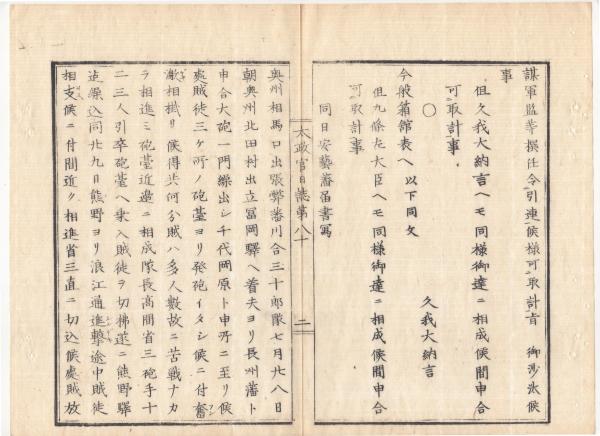 謀軍監等撰任令引連候様可取計旨 御沙汰候
事
但久我大納言ヘモ同様御達ニ相成候間申合
可取計事
○ 久我大納言
今般箱館表ヘ以下同文
但九條左大臣ヘモ同様御達ニ相成候間申合
可取計事
同日安藝藩届書寫
太政官日誌第八十 二
奥州相馬口出張弊藩川合三十郎隊七月廿八日
朝奥州北田村出立冨岡驛ヘ着夫ヨリ長州藩ト
申合大砲一門繰出シ千代岡原ト申所ニ至リ候
處賊徒三ケ所ノ砲臺ヨリ発砲イタシ候ニ付奮
激相挑リ候得共何分賊ハ多人數故ニ苦戦ナカ
ラ相進ミ砲臺近邉ニ相成隊長高間省三砲手十
二三人引卒砲臺ヘ乗入賊徒ヲ切拂遂ニ熊野驛
迠繰込同廿九日熊野ヨリ浪江通進撃途中賊徒
相支候ニ付間近ク相進省三直ニ切込候處賊放